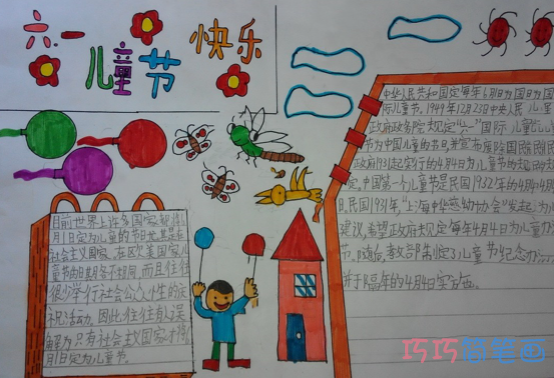 六一
儿童节
快乐
中华人民共和国定每年6月1日为国日为国
际儿童节。1949年12月23日中央人民
政府政务院规定"六一"国际儿童
节为中国儿童的节日,并宣布废除国
政府1931起实行的4月4日为儿童节的
定。中国第一个儿童节是民国1932年的4月4
日。民国1931年,"上海中华慈幼协会"发起,为儿
建议,希望政府规定每年4月4日为儿
节。随后,教部制定了儿童节纪念办
并于隔年的4月4日实施。
目前世界上许多国家都将
月1日定为儿童的节日,尤其是
社会主义国家。在欧美国家,儿
童节的日期各不相同,而且往往
很少举行社会公众性的庆
祝活动。因此,往往有人误
解为只有社会主义国家才将
月1日定为儿童节。
巧巧简笔画